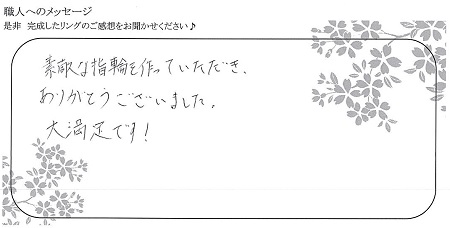 職人へのメッセージ
是非 完成したリングのご感想をお聞かせください♪
素敵な指輪を作っていただき、
ありがとうございました。
大満足です!